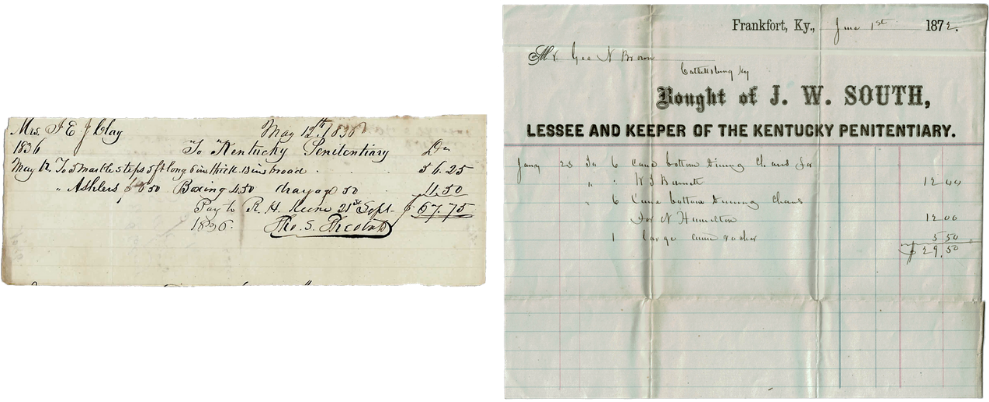 Mrs. I E J Clay May 12th, 1836
1836 To Kentucky Penitentiary Dr
May 12. To 5 marble steps 5 ft long 6 in thick 13 in broad 56.25
" Ashlers $6.50 Boxing 4.50 drayage 50 11.50
Pay to R. H. 21st Sept. $67.75
1836. Tho. S. Theobald
Frankfort, Ky., June 1st 1872.
Mr Geo N Brown
Catlettsburg Ky
Bought of J. W. SOUTH,
LESSEE AND KEEPER OF THE KENTUCKY PENITENTIARY.
Jany 23 To 6 Cane bottom Dining Chairs for
" W J Barnett 12 00
" 6 Cane bottom Dining Chairs
for N Hamilton 12.00
1 large cane rocker 5 50
$29.50